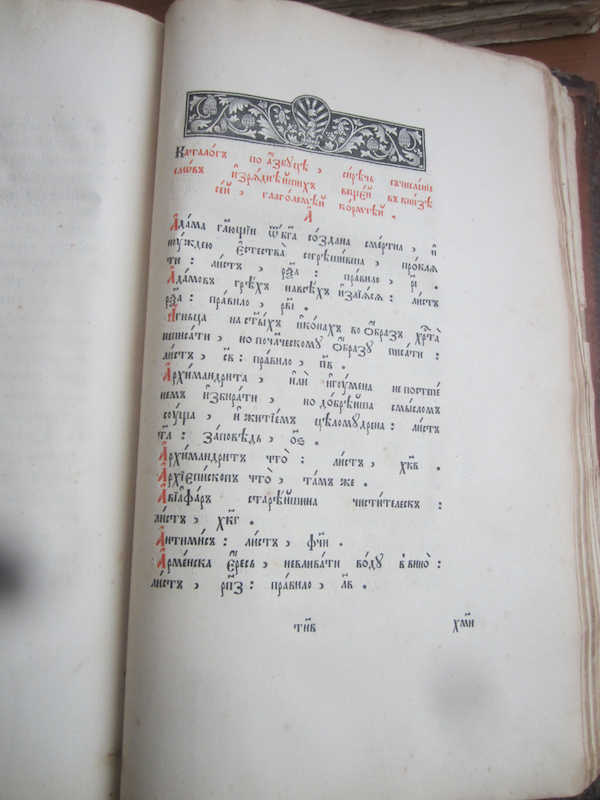 Каталогъ по а҆́збꙋцѣ, си́рѣчь съчисле́нїе
словъ и҆зрѧднѣ́йшихъ веще́й въ кни́зѣ
се́й, глаго́лемѣй ко́рмчей.
А҆
А҆да́ма гл҃ющїи ѿ бг҃а со́здана сме́ртна, и҆
нꙋ́ждею є҆стества̀ согрѣши́вша, прокля
ти: ли́стъ, рл҃а: пра́вило, рı҃.
А҆да́мовъ грѣ́хъ навсѣ́хъ и҆злїѧ́сѧ: ли́стъ
рл҃а: пра́вило, рв҃ı.
А҆́гньца на ст҃ы́хъ и҆ко́нахъ во ѻ҆́бразъ хрⷭ҇та̀
неписа́ти, но поч҃л҃ческому ѻ҆́бразꙋ писа́ти:
ли́стъ, св҃: пра́вило, пв҃.
А҆рхимандри́та, и҆лѝ и҆гꙋ́мена непостепе́
немъ и҆збира́ти, но до́брѣйша смы́сломъ
сꙋ́ща, и҆ житїе́мъ цѣломꙋ́дрена: ли́стъ
тл҃: за́повѣдь, ѻ҃ѕ.
А҆рхимандри́тъ что̀: ли́стъ, хк҃в.
А҆рхїепи́скопъ что̀, та́мъ же.
А҆вїаѳа́ръ старѣ́йшина чисти́телескъ:
ли́стъ, хк҃г.
А҆нтими́съ: ли́стъ, фч҃и.
А҆рме́нска є҆́ресь, невлива́ти во́дꙋ в вино̀:
ли́стъ, рп҃з: пра́вило, л҃в.
тн҃в хм҃и